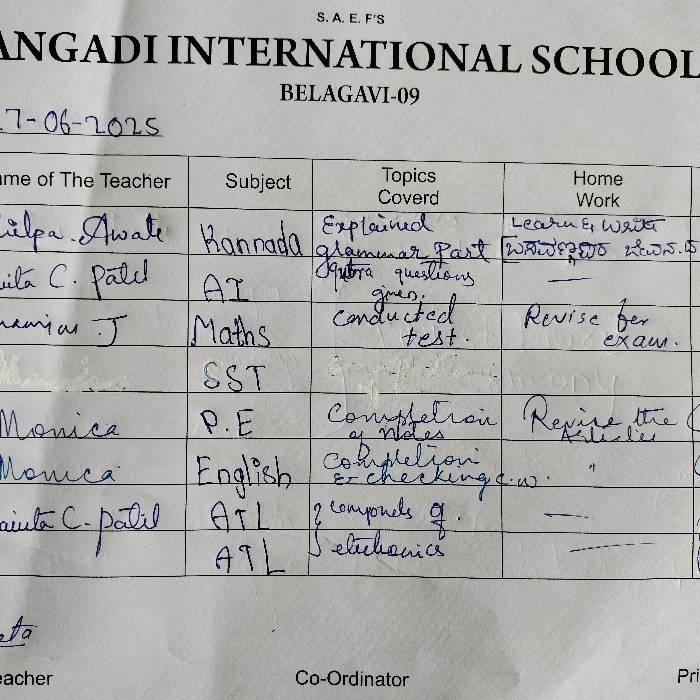 S. A. E. F'S
ANGADI INTERNATIONAL SCHOOL
BELAGAVI-09
7-06-2025
me of The Teacher Subject Topics Coverd Home Work
Awate Kannada Explained grammar part Learn & write
C. Patil AI questions given. —
J Maths Conducted test. Revise for exam.
SST
Monica P.E Completion of Notes Revise the Articles
Monica English Completion & checking c.w. "
C. Patil ATL of —
ATL —
eacher Co-Ordinator Pri